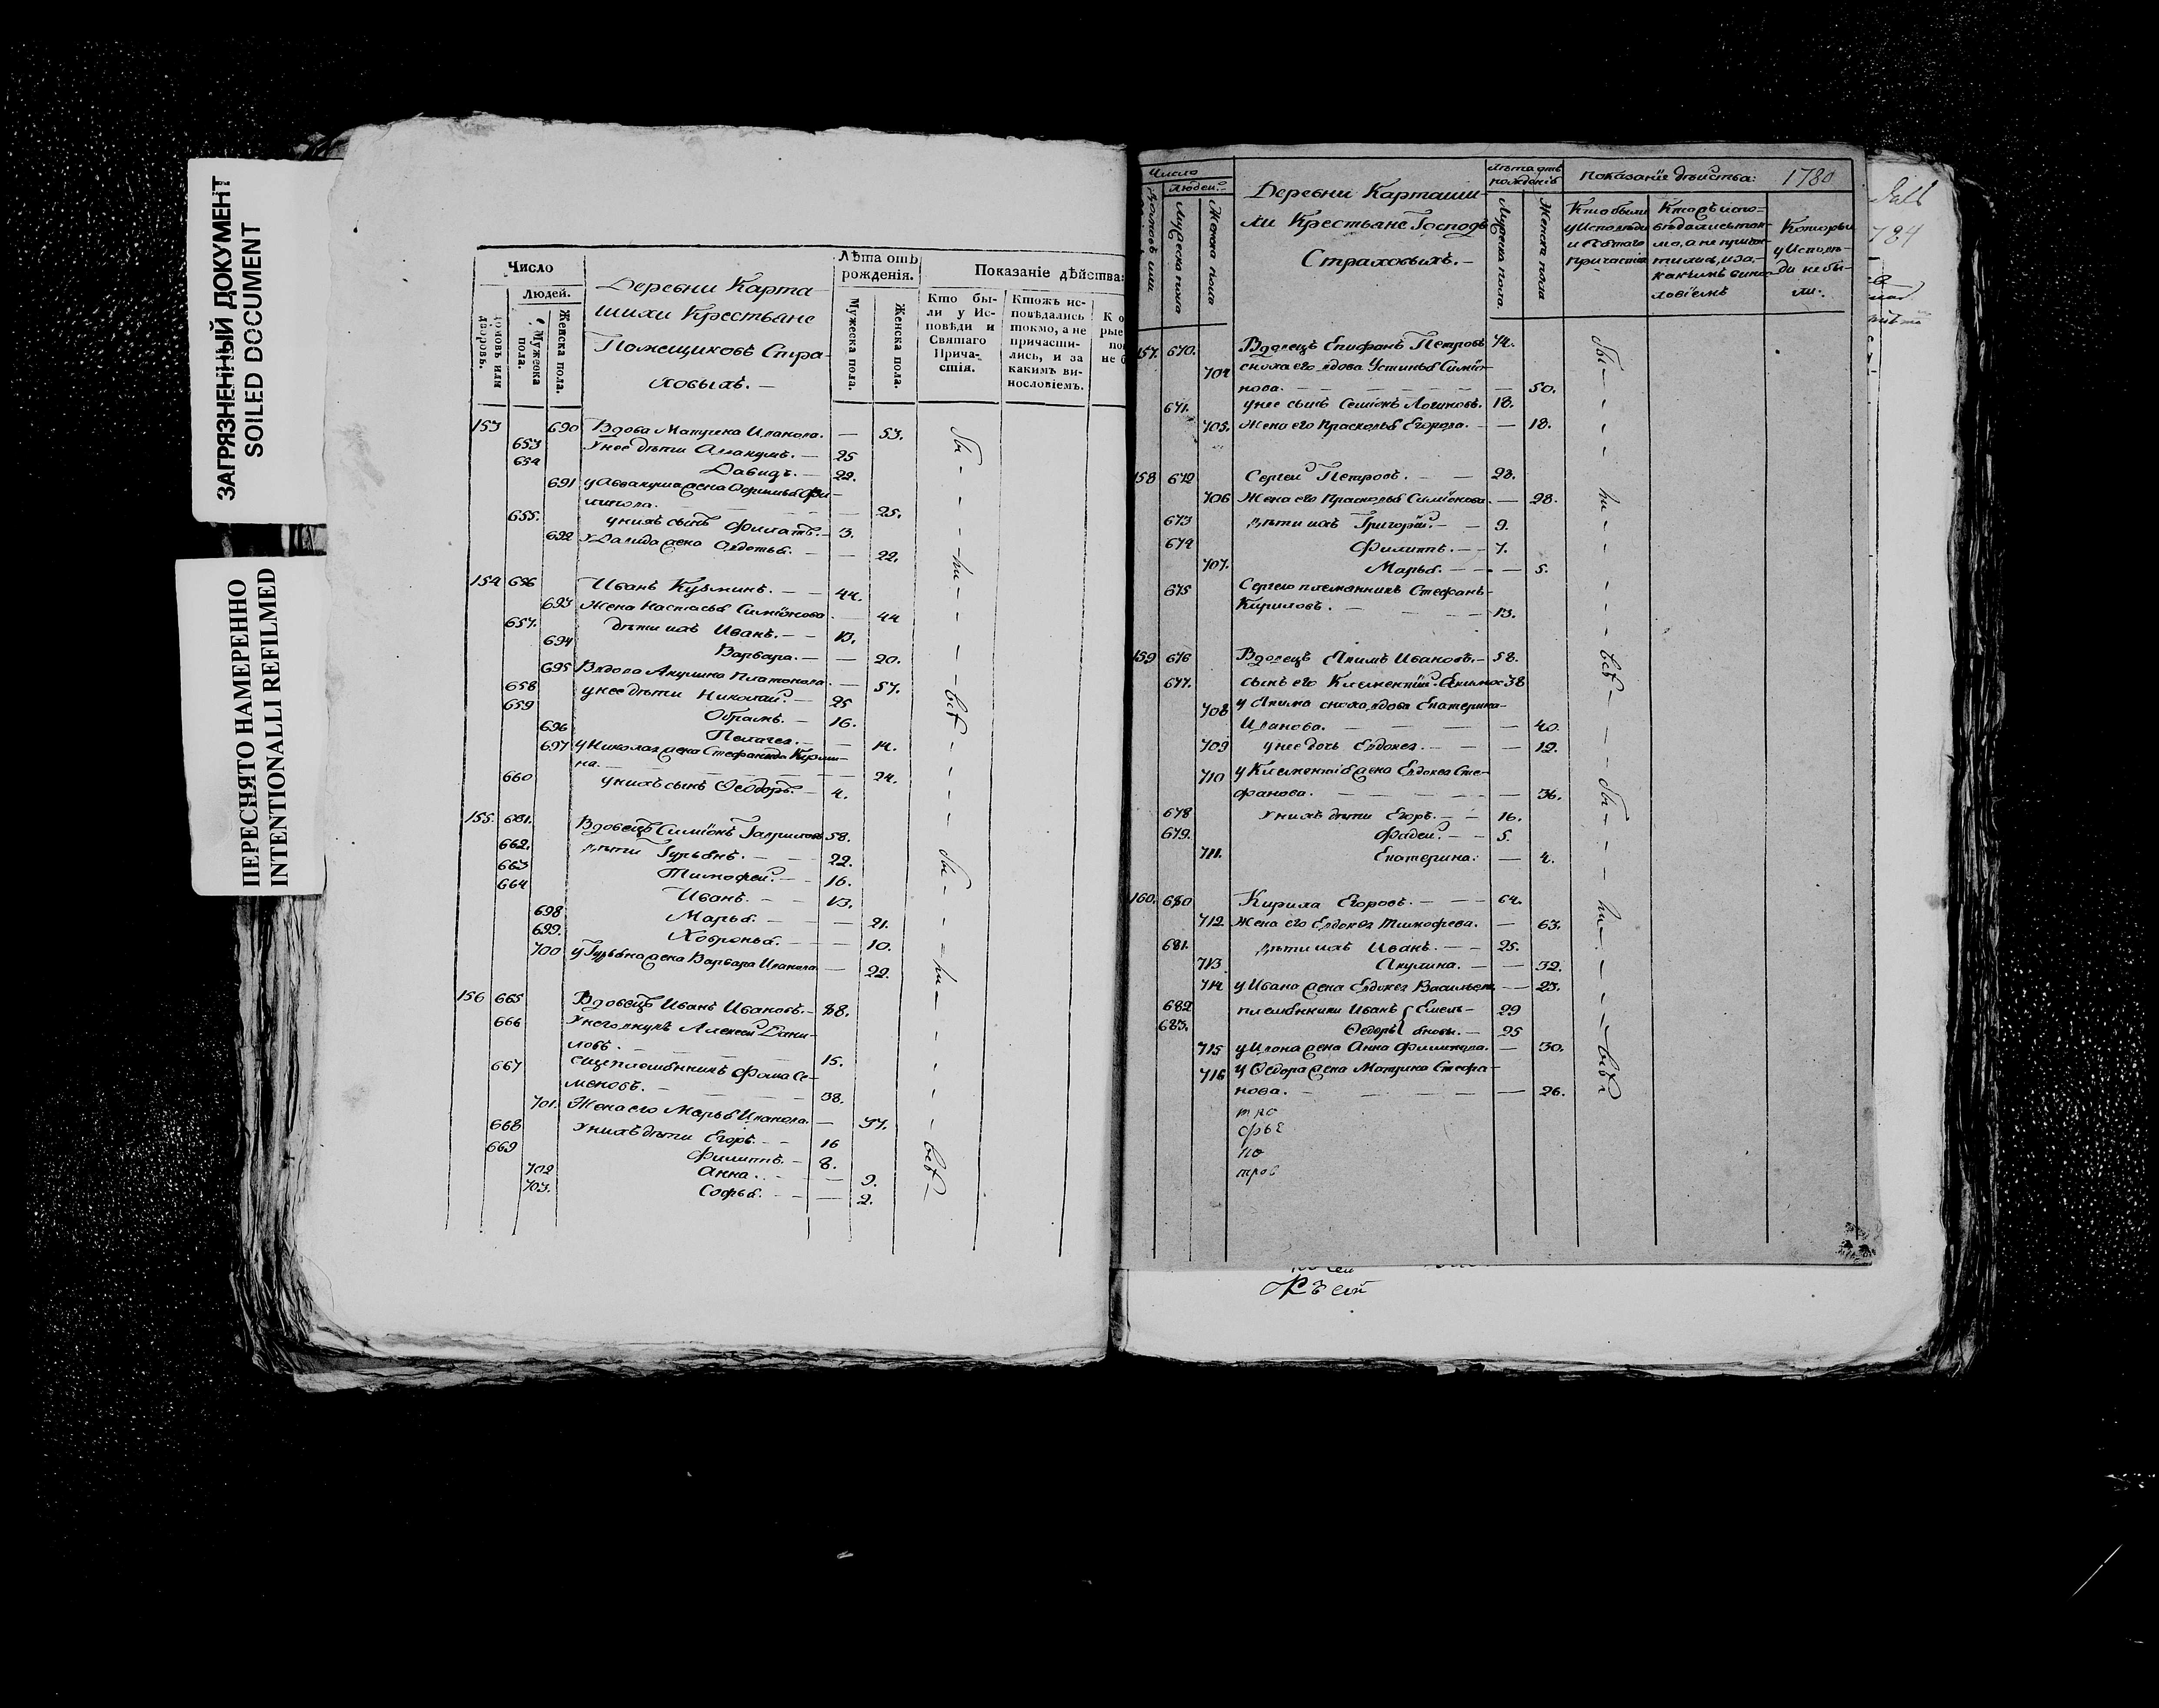 ЗАГРЯЗНЕННЫЙ ДОКУМЕНТ
SOILED DOCUMENT
ПЕРЕСНЯТО НАМЕРЕННО
INTENTIONALLI REFILMED
Число
Людей.
домовъ или дворовъ.
Мужеска пола.
Женска пола.
Деревни Карта
шихи Крестьяне
Помещиковъ Стра-
ховыхъ. —
Лѣта отъ рожденія.
Мужеска пола.
Женска пола.
Показаніе дѣйства:
Кто бы-
ли у Ис-
повѣди и
Святаго
Прича-
стія.
Ктожъ ис-
повѣдались
токмо, а не
причасти-
лись, и за
какимъ ви-
нословіемъ.
153 690 Вдова Матрена Иванова. — 53.
653 У нее дѣти Аввакумъ. — 25
654 Давидъ. — 22.
691 у Аввакума жена Офимья Фи-
липова. — 25.
655. у нихъ сынъ Филатъ. — 3.
692 у Давида жена Овдотья. — — 22.
154 656 Иванъ Кузминъ. — — 44.
693 Жена Настасья Симіонова — 44
657. дѣти ихъ Иванъ. — — 13.
694 Варвара. — — 20.
695 Вдова Акулина Платонова. — 57.
658 у нее дѣти Николай. — 25
659 Обрамъ. — 16.
696 Пелагея. — — 14.
697 у Николая жена Стефанида Кирили-
на. — 24.
660 у нихъ сынъ Ѳеодоръ. — 4.
155. 661. Вдовецъ Симіонъ Гавриловъ 58.
662. дѣти Гурьянъ. — — 22.
663 Тимофей. — — 16.
664 Иванъ. — — 13.
698 Марья. — — 21.
699. Хавронья. — — 10.
700 у Гурьяна жена Варвара Иванова — 22.
156 665 Вдовецъ Иванъ Ивановъ. — 88.
666 У него внукъ Алексей Дани-
ловъ. — 15.
667 еще племянникъ Фома Се-
меновъ. — 38.
701. Жена его Марья Иванова. — 37.
668 У нихъ дѣти Егоръ. — — 16
669 Филиппъ. — 8.
702 Анна. — — 9.
703. Софья. — — 2.
бы — ли — всѣ — бы — ли — всѣ
Число
Людей.
Мужеска пола
Женска пола
Деревни Карташи-
хи Крестьяне Господъ
Страховыхъ. —
Лѣта отъ рожденія
Мужеска пола.
Женска пола
Показаніе дѣйства: 1780
Кто были
у Исповѣди
и Святаго
причастія
Которыи
у Исповѣ-
ди не бы-
ли.
157. 670. Вдовецъ Епифанъ Петровъ 74.
704 сноха его вдова Устинья Симіо-
нова. — 50.
671. у нее сынъ Семіонъ Логиновъ. 18.
705. Жена его Прасковья Егорова. — — 18.
158 672 Сергей Петровъ. — — 28.
706 Жена его Прасковья Симіонова. — 28.
673 дѣти ихъ Григорій. — — 9.
674 Филиппъ. — — 7.
707. Марья. — — 5.
675 Сергею племянникъ Стефанъ
Кириловъ. — 13.
159 676 Вдовецъ Якимъ Ивановъ. — 58.
677. сынъ его Клементій Якимов 38
708 у Якима сноха вдова Екатерина
Иванова. — 40.
709 у нее дочь Евдокея. — — 12.
710 у Клементія жена Евдокея Сте-
фанова. — 36.
678 У нихъ дѣти Егоръ. — — 16.
679. Фадей. — — 5.
711. Екатерина. — 4.
160. 680 Кирила Егоровъ. — — 64.
712. Жена его Евдокея Тимофеева. — 63.
681. дѣти ихъ Иванъ. — — 25.
713 Акулина. — — 32.
714 у Ивана жена Евдокея Васильева — 23.
682 племянники Иванъ Емель- 29
683. Ѳедоръ яновы. — 25
715 у Ивана жена Анна Филипова. — 30.
716 у Ѳедора жена Матрена Стефа-
нова. — 26.
бы — ли — всѣ — бы — ли — всѣ